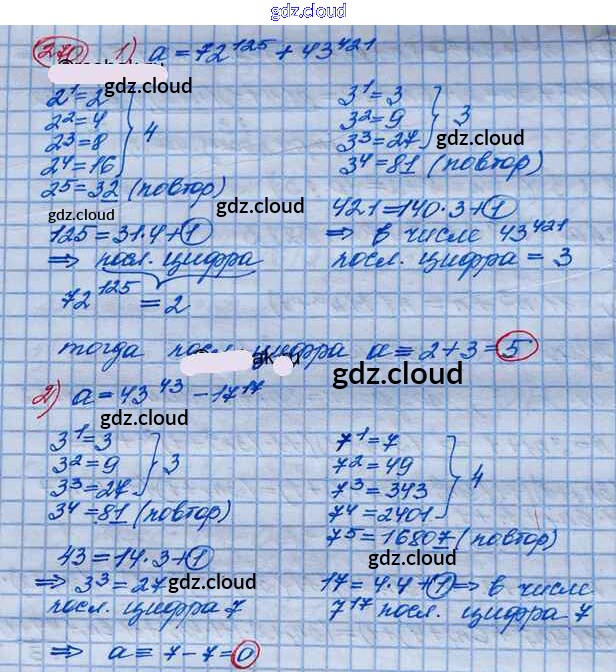 gdz.cloud
270 1) a = 72¹²⁵ + 43⁴²¹
gdz.cloud
2¹ = 2
2² = 4
2³ = 8
2⁴ = 16
4
2⁵ = 32 (повтор)
3¹ = 3
3² = 9
3³ = 27
3
gdz.cloud
3⁴ = 81 (повтор)
gdz.cloud
gdz.cloud
125 = 31·4 + 1
⇒ посл. цифра
72¹²⁵ = 2
421 = 140·3 + 1
⇒ в числе 43⁴²¹
посл. цифра = 3
тогда посл. цифра a = 2 + 3 = 5
gdz.cloud
2) a = 43⁴³ − 17¹⁷
gdz.cloud
3¹ = 3
3² = 9
3³ = 27
3
3⁴ = 81 (повтор)
gdz.cloud
7¹ = 7
7² = 49
7³ = 343
7⁴ = 2401
4
7⁵ = 16807 (повтор)
gdz.cloud
43 = 14·3 + 1
⇒ 3³ = 27
gdz.cloud
посл. цифра 7
17 = 4·4 + 1 ⇒ в числе
7¹⁷ посл. цифра 7
⇒ a = 7 − 7 = 0
gdz.cloud